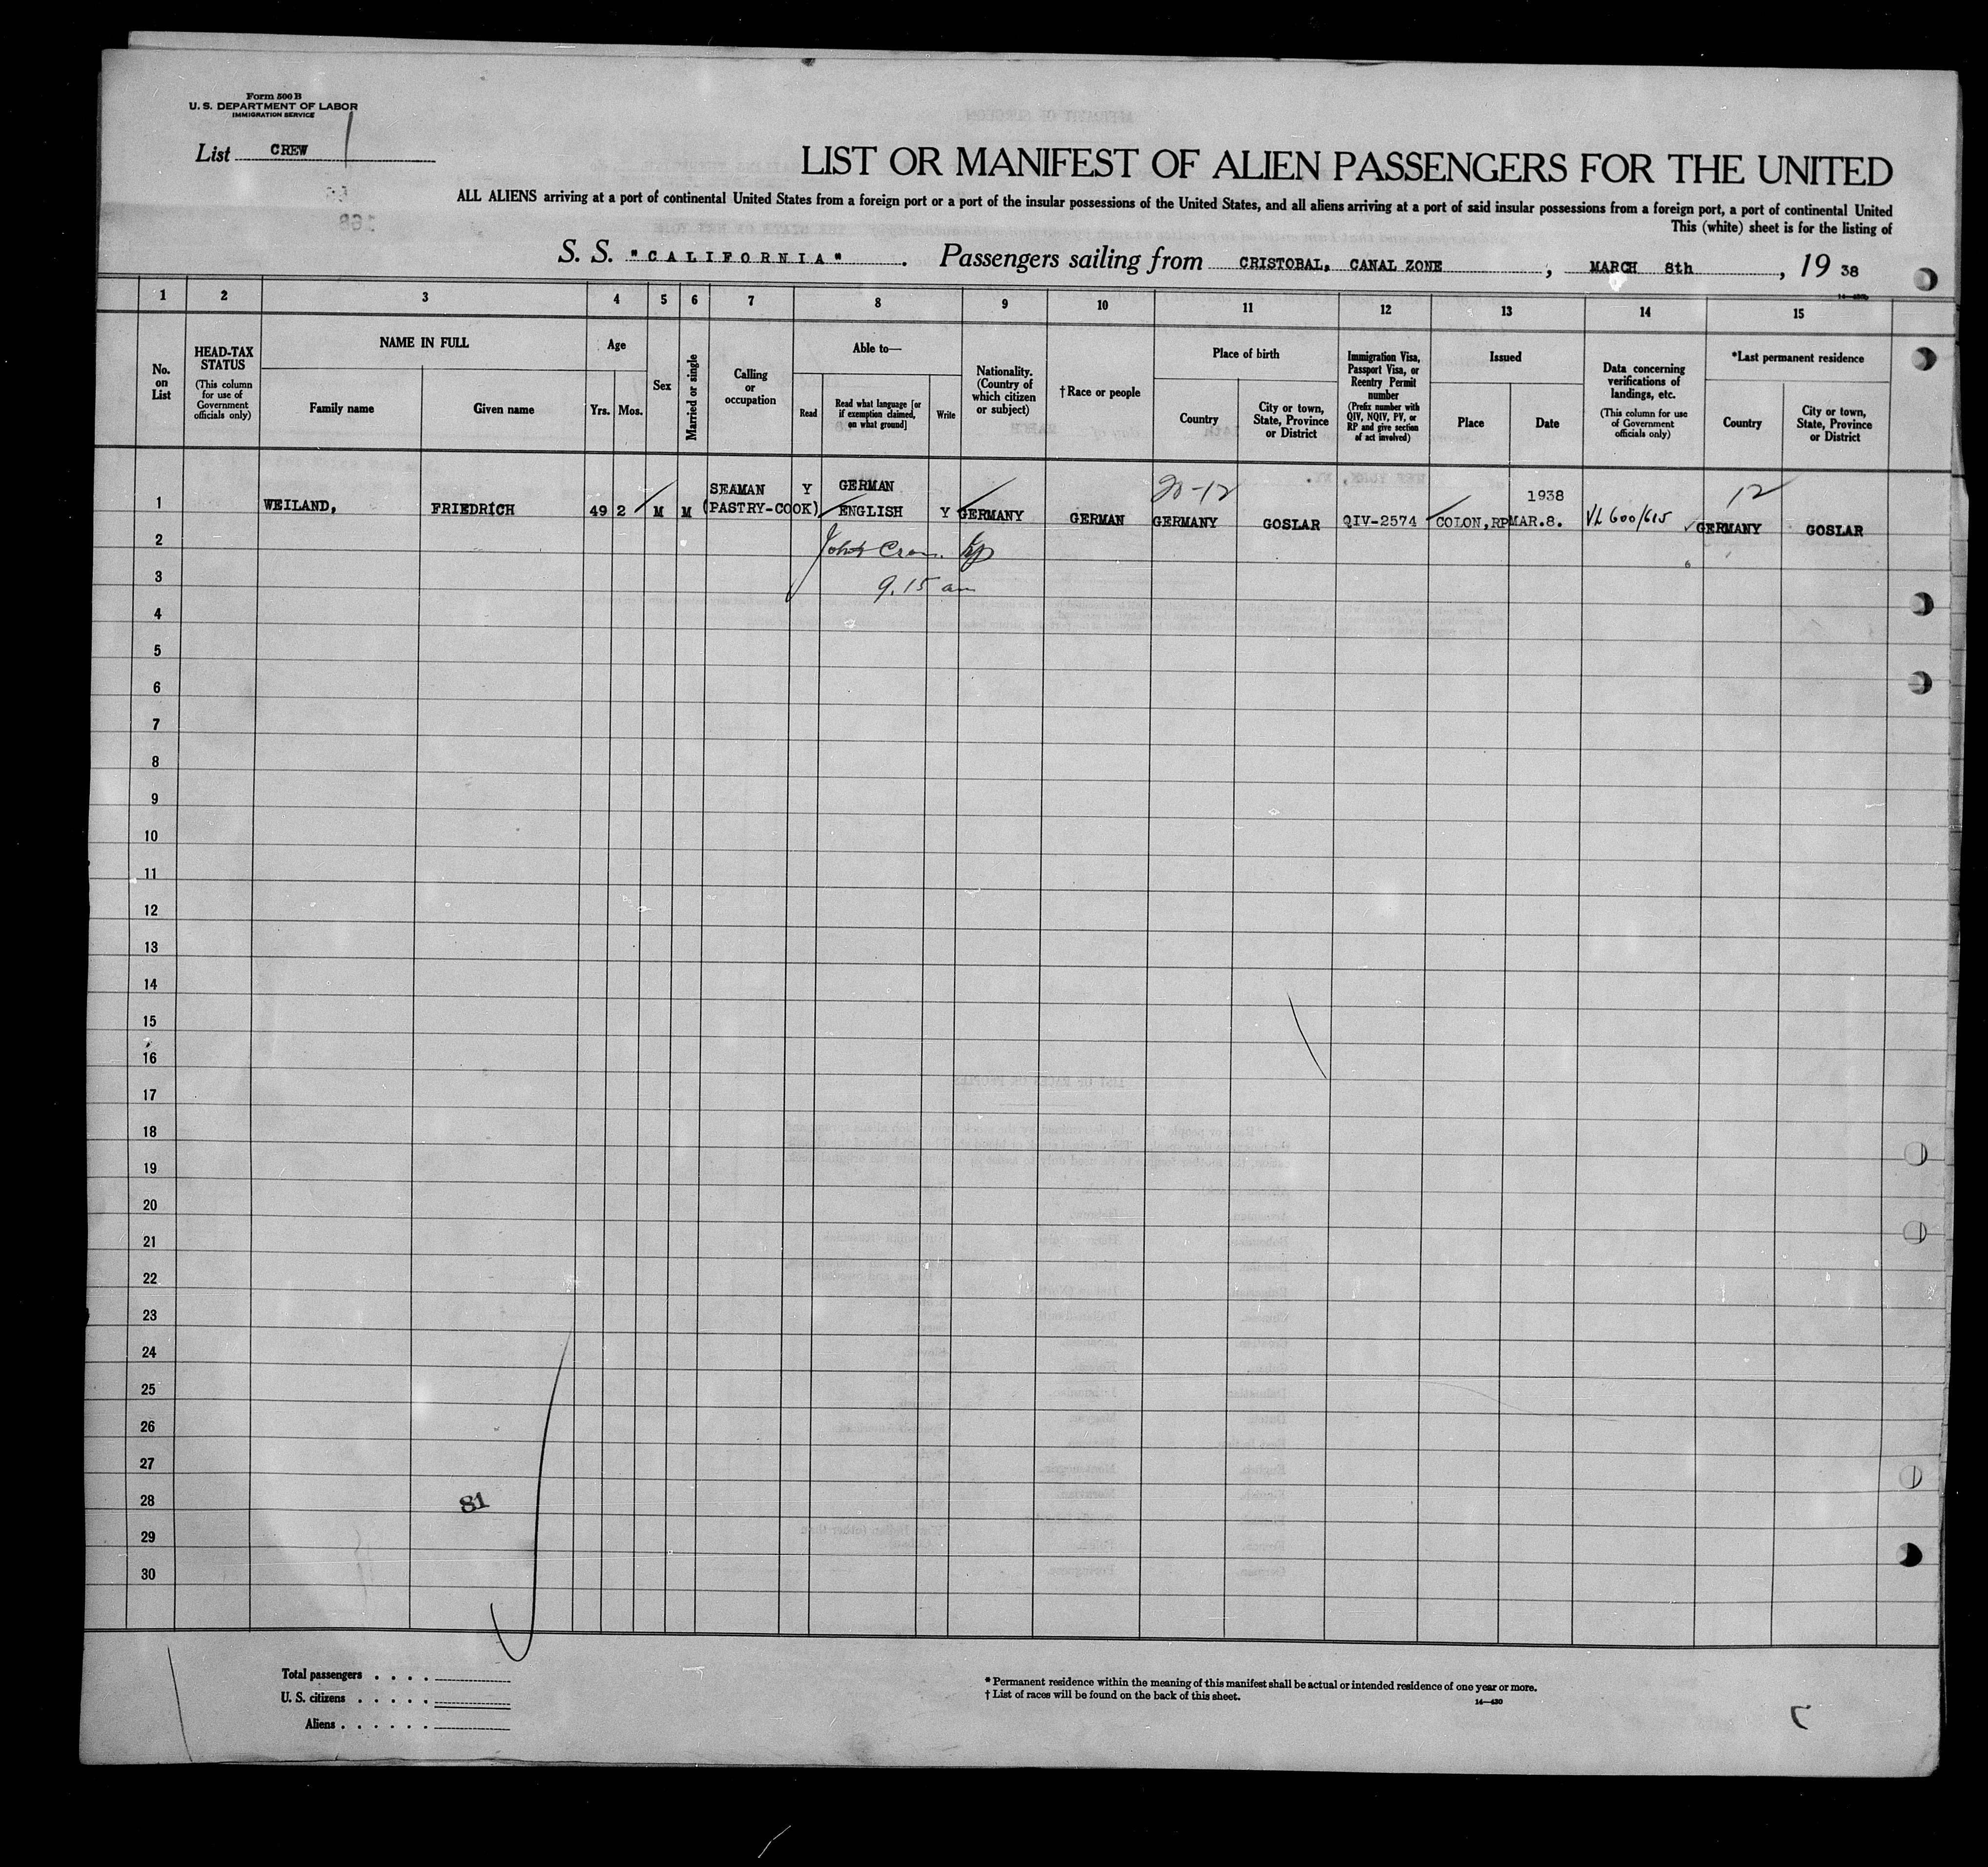 Form 500 B
U. S. DEPARTMENT OF LABOR
IMMIGRATION SERVICE
List CREW 1
LIST OR MANIFEST OF ALIEN PASSENGERS FOR THE UNITED
ALL ALIENS arriving at a port of continental United States from a foreign port or a port of the insular possessions of the United States, and all aliens arriving at a port of said insular possessions from a foreign port, a port of continental United
This (white) sheet is for the listing of
S. S. "CALIFORNIA". Passengers sailing from CRISTOBAL, CANAL ZONE, MARCH 8th, 19 38
1 2 3 4 5 6 7 8 9 10 11 12 13 14 15
No. on List
HEAD-TAX STATUS
(This column for use of Government officials only)
NAME IN FULL
Family name
Given name
Age
Yrs. Mos.
Sex
Married or single
Calling or occupation
Able to—
Read
Read what language [or if exemption claimed, on what ground]
Write
Nationality. (Country of which citizen or subject)
†Race or people
Place of birth
Country
City or town, State, Province or District
Immigration Visa, Passport Visa, or Reentry Permit number
(Prefix number with QIV, NQIV, PV, or RP and give section of act involved)
Issued
Place
Date
Data concerning verifications of landings, etc.
(This column for use of Government officials only)
*Last permanent residence
Country
City or town, State, Province or District
SEAMAN Y GERMAN 20-12 1938 12
1 WEILAND, FRIEDRICH 49 2 M M (PASTRY-COOK) ENGLISH Y GERMANY GERMAN GERMANY GOSLAR QIV-2574 COLON, RP MAR.8. VL 600/615 GERMANY GOSLAR
2
3 9.15 am
4
5
6
7
8
9
10
11
12
13
14
15
16
17
18
19
20
21
22
23
24
25
26
27
28 81
29
30
Total passengers . . . .
U. S. citizens . . . . .
Aliens . . . . . .
* Permanent residence within the meaning of this manifest shall be actual or intended residence of one year or more.
† List of races will be found on the back of this sheet.
14—430